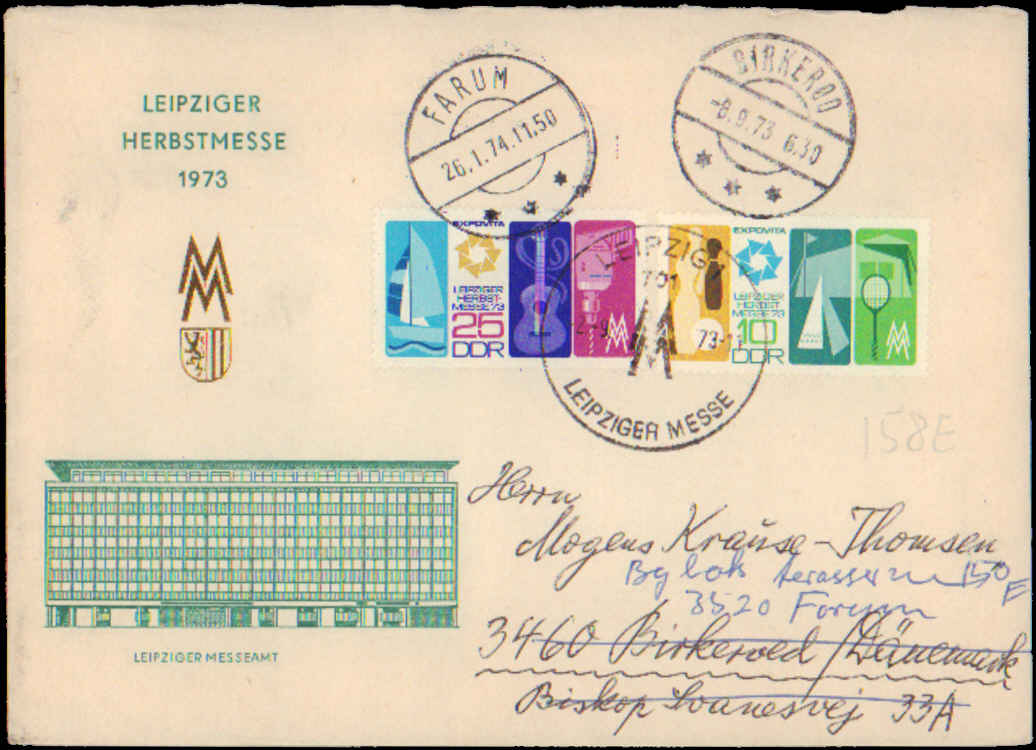 LEIPZIGER
HERBSTMESSE
1973
FARUM
26.1.74.11.50
BIRKERØD
-8.9.73 6.30
EXPOVITA
LEIPZIGER
HERBST-
MESSE'73
25
DDR
MM
EXPOVITA
LEIPZIGER
HERBST
MESSE'73
10
DDR
MM
LEIPZIG
701
73-11
LEIPZIGER MESSE
158E
LEIPZIGER MESSEAMT
Herrn
Mogens Krause-Thomsen
150 E
3520 Forum
3460 Birkeroed / Dänemark
Biskop Svanesvej 33A